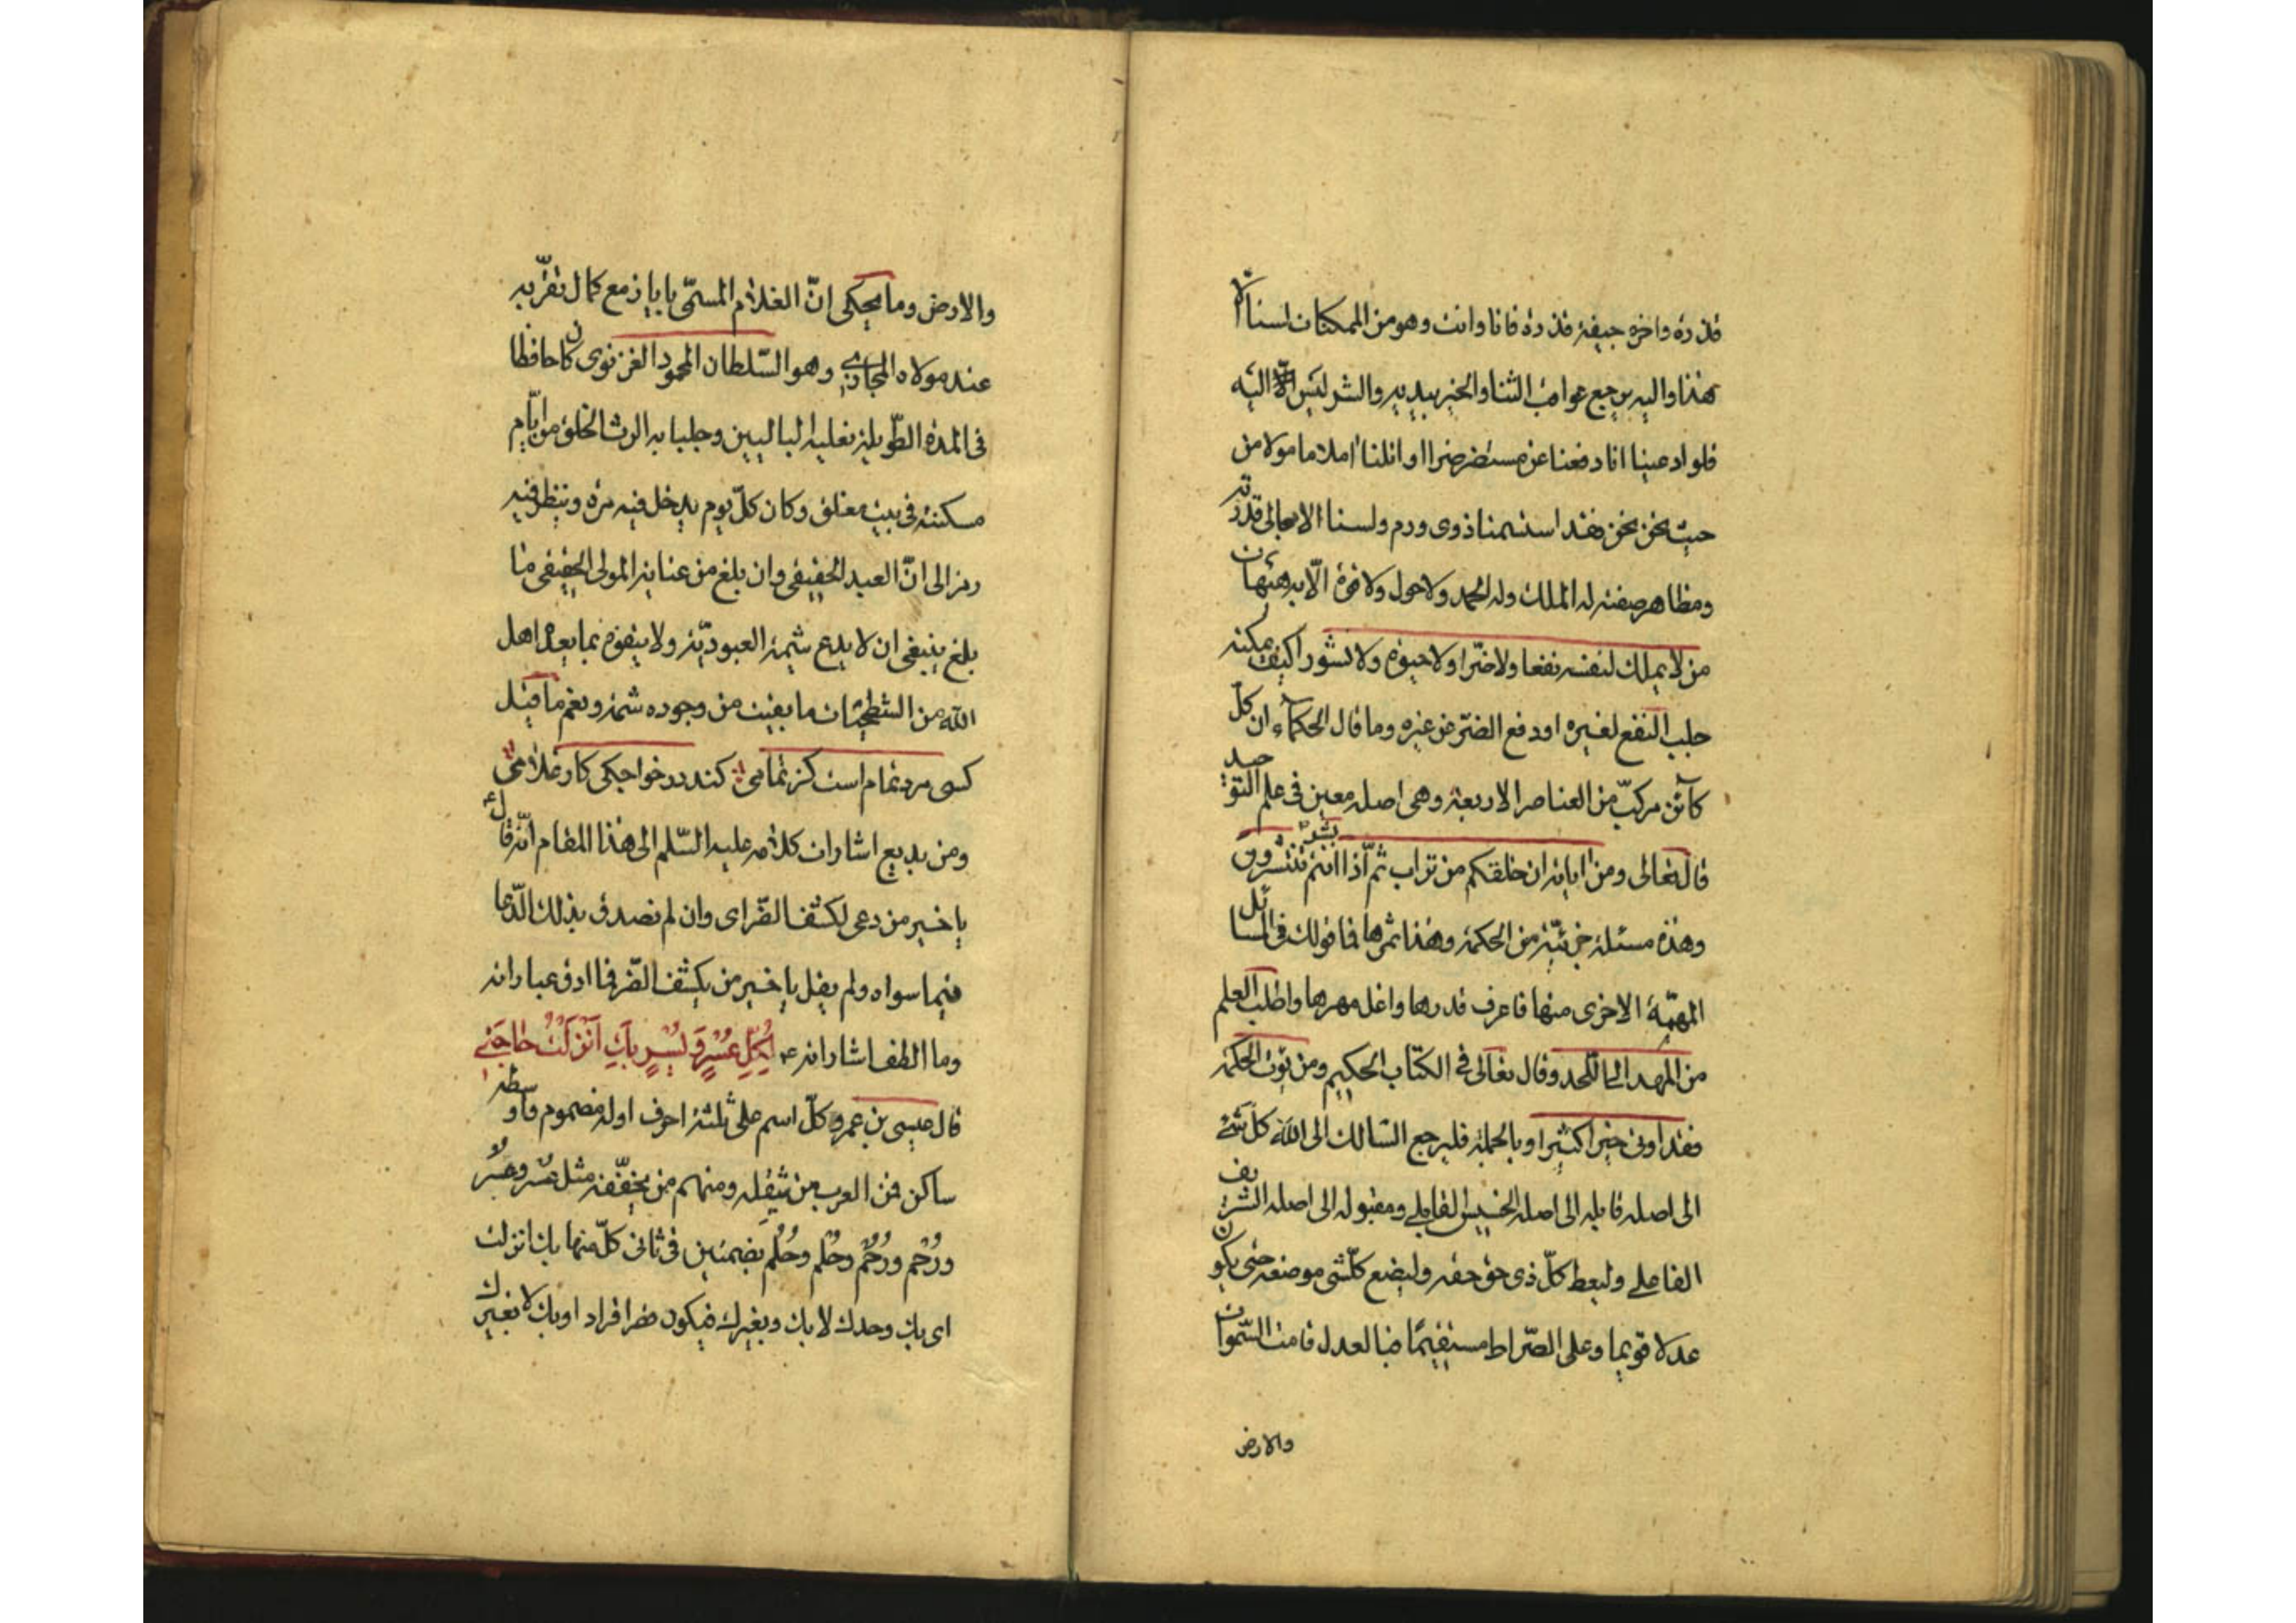 قذرة واخره جيفة قذرة فانا وانت وهو من الممكنات لسنا الا
هذا واليه يرجع عواقب الثنا والخير بيديه والشر ليس الا اليه
فلو ادعينا انا دفعنا عن مستضر ضرا او انلنا املا ما مولا من
حيث نحن نحن فقد استسمنا ذوى ورم ولسنا الا مجالى قدرته
ومظاهر صفته له الملك وله الحمد ولا حول ولا قوة الّا به هيهات
من لا يملك لنفسه نفعا ولا ضرّا ولا حيوة ولا نشورا كيف يمكنه
جلب النفع لغيره او دفع الضرّ عن غيره وما قال الحكمآء ان كلّ
كآئن مركبّ من العناصر الاربعة وهى اصله معين فى علم التوحيد
قال تعالى ومن اياته ان خلقكم من تراب ثمّ اذا انتم بشر تنتشرون
وهذه مسئلة جزئيّة من الحكمة وهذا ثمرها فما قولك فى المسائل
المهمّة الاخرى منها فاعرف قدرها واغل مهرها واطلب العلم
من المهد الى اللحد وقال تعالى فى الكتاب الحكيم ومن يؤت الحكمة
فقد اوتى خيرا كثيرا وبالجملة فليرجع السالك الى الله كل شئ
الى اصله قابله الى اصله الخسيس القابلى ومقبوله الى اصله الشريف
الفاعلى وليعط كلّ ذى حق حقه وليضع كلّشى موضعه حتى يكون
عدلا قويما وعلى الصّراط مستقيمًا فبالعدل قامت السّموات
والارض
والارض وما يحكى انّ الغلام المسمّى باياز مع كمال تقرّبه
عند مولاه المجازى وهو السّلطان المحمود الغزنوى كان حافظا
فى المدة الطّويلة نعليه الباليين وجلبابه الرث الخلق من ايّام
مسكنته فى بيت مغلق وكان كلّ يوم يدخل فيه مرة وينظر فيه
رمز الى انّ العبد الحقيقى وان بلغ من عناية المولى الحقيقى ما
بلغ ينبغى ان لا يدع شيمة العبوديّة ولا يتفوه بما يعده اهل
الله من الشطحيات ما بقيت من وجوده شمة ونعم ما قيل
كسى مرد تمام است كز تمامى كند در خواجكى كار غلامى
ومن بديع اشارات كلامه عليه السّلم الى هذا المقام انّه قال
يا خير من دعى لكشف الضّر اى وان لم تصدق بذلك الدّعا
فيما سواه ولم يقل يا خير من يكشف الضّر فما ادق عباراته
وما الطف اشاراته ع لِكُلِّ عُسْرٍ وَيُسْرٍ بِكَ اَنْزَلْتُ حَاجَتِى
قال عيسى بن عمرو كلّ اسم على ثلثة احرف اوله مضموم واوسطه
ساكن فمن العرب من يثقله ومنهم من يخفّفه مثل عسر وعسر
ورُحْم ورُحُم وحُلْم وحُلُم بضمتين فى ثانى كلّ منها بك انزلت
اى بك وحدك لا بك وبغيرك فيكون قصر افراد او بك لا بغيرك